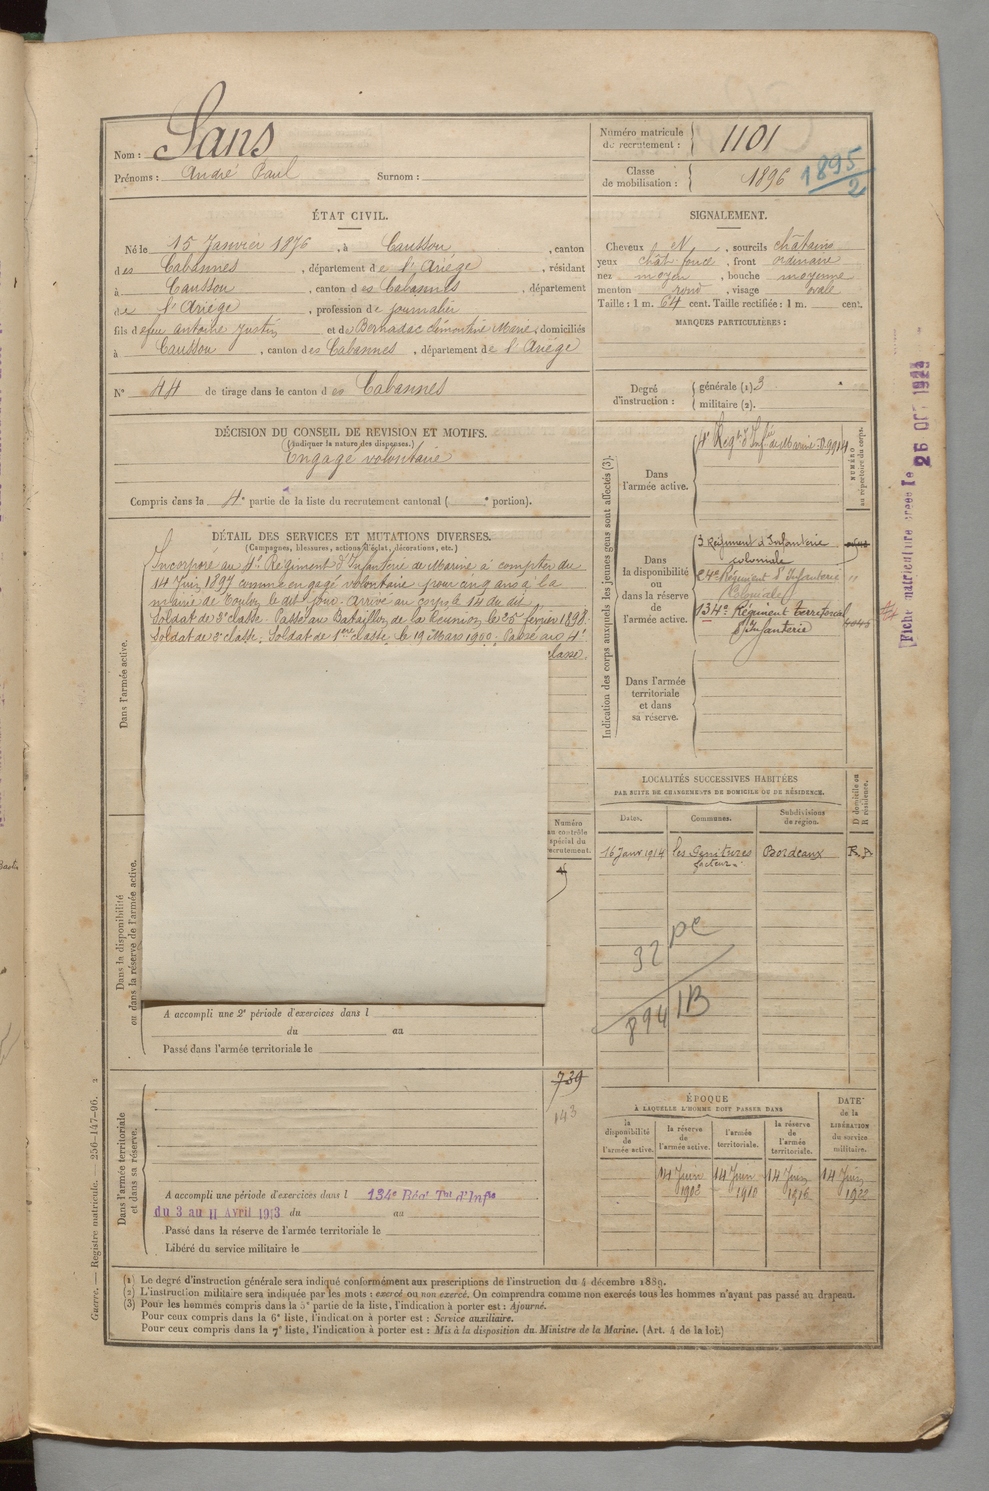 Nom : Sans
Prénoms : André Paul Surnom :
Numéro matricule de recrutement : 1101
Classe de mobilisation : 1896 1895/2
ÉTAT CIVIL.
Né le 15 Janvier 1876, à Caussou, canton
des Cabannes, département de l'Ariège, résidant
à Caussou, canton des Cabannes, département
de l'Ariège, profession de journalier
fils de feu Antoine Justin et de Bernadac Clémentine Marie, domiciliés
à Caussou, canton des Cabannes, département de l'Ariège
N° 44 de tirage dans le canton des Cabannes
SIGNALEMENT.
Cheveux N, sourcils châtains
yeux chât foncé, front ordinaire
nez moyen, bouche moyenne
menton rond, visage ovale
Taille : 1 m. 64 cent. Taille rectifiée : 1 m. cent.
MARQUES PARTICULIÈRES :
Degré d'instruction : générale (1) 3
militaire (2).
DÉCISION DU CONSEIL DE RÉVISION ET MOTIFS.
(Indiquer la nature des dispenses.)
Engagé volontaire
Compris dans la 4e partie de la liste du recrutement cantonal ( e portion).
DÉTAIL DES SERVICES ET MUTATIONS DIVERSES.
(Campagnes, blessures, actions d'éclat, décorations, etc.)
Incorporé au 4e Régiment d'Infanterie de Marine à compter du
14 Juin 1897 comme engagé volontaire pour cinq ans à la
mairie de Toulon le dit jour. Arrivé au corps le 14 du dit,
Soldat de 2e classe. Passé au Bataillon de la Réunion le 25 février 1898.
Soldat de 2e classe. Soldat de 1ère classe le 19 Mars 1900. Passé au 4e
classe.
Dans l'armée active.
Dans la disponibilité
ou dans la réserve de l'armée active.
Numéro au contrôle spécial du recrutement.
A accompli une 2e période d'exercices dans l
du au
Passé dans l'armée territoriale le
739
143
Dans l'armée territoriale
et dans sa réserve.
A accompli une période d'exercices dans l 134e Régt Tal d'Infie
du 3 au 11 Avril 1913 du au
Passé dans la réserve de l'armée territoriale le
Libéré du service militaire le
Indication des corps auxquels les jeunes gens sont affectés (3).
NUMÉRO au répertoire du corps.
Dans l'armée active.
4e Régt d'Infie de Marine
Dans la disponibilité ou dans la réserve de l'armée active.
3 Régiment d'Infanterie
coloniale
24e Régiment d'Infanterie "
Coloniale
134e Régiment territorial
d'Infanterie
Dans l'armée territoriale et dans sa réserve.
[Fiche matriculaire créée le 26 OCT 1923
LOCALITÉS SUCCESSIVES HABITÉES
PAR SUITE DE CHANGEMENTS DE DOMICILE OU DE RÉSIDENCE.
Dates. Communes. Subdivisions de région. D domicile ou R résidence.
16 Janv 1914 Bordeaux
facteur
32 PC
894 1B
ÉPOQUE
À LAQUELLE L'HOMME DOIT PASSER DANS
la disponibilité de l'armée active.
la réserve de l'armée active.
l'armée territoriale.
la réserve de l'armée territoriale.
DATE de la LIBÉRATION du service militaire.
14 Juin 14 Juin 14 Juin 14 Juin
1910 1916 1922
(1) Le degré d'instruction générale sera indiqué conformément aux prescriptions de l'instruction du 4 décembre 1889.
(2) L'instruction militaire sera indiquée par les mots : exercé ou non exercé. On comprendra comme non exercés tous les hommes n'ayant pas passé au drapeau.
(3) Pour les hommes compris dans la 5e partie de la liste, l'indication à porter est : Ajourné.
Pour ceux compris dans la 6e liste, l'indication à porter est : Service auxiliaire.
Pour ceux compris dans la 7e liste, l'indication à porter est : Mis à la disposition du Ministre de la Marine. (Art. 4 de la loi.)
Guerre. — Registre matricule. — 256-147-96.